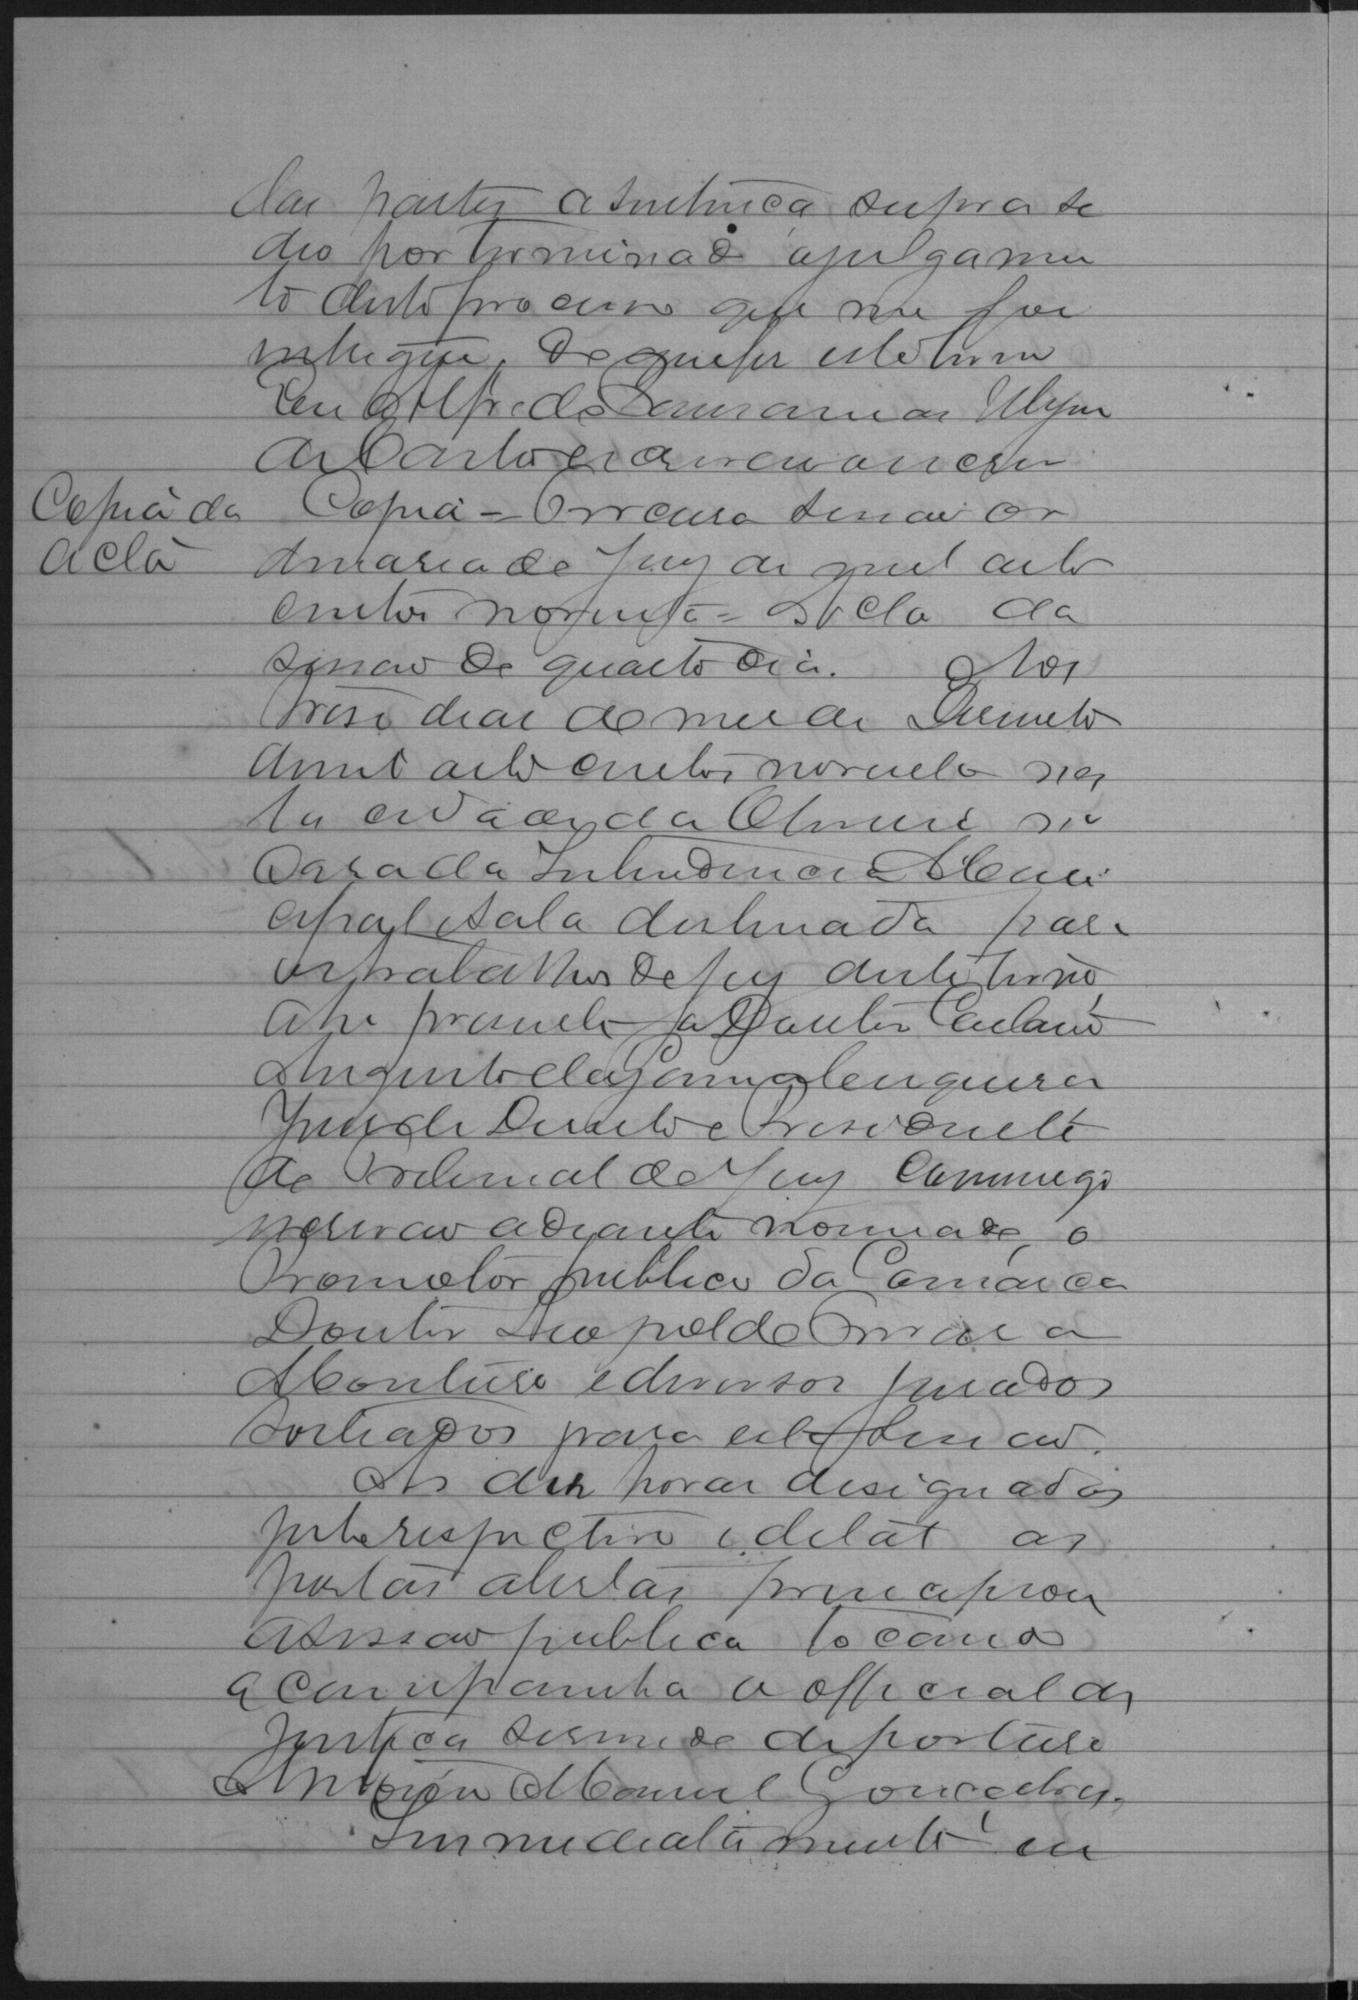 das partes a sentença supra se
deo por terminado o julgamen
to deste processo que me foi
entregue, do que fis este termo
Eu Alfredo
escrivão escrevi
Copia da
acta
Copia = Primeira sessão or
dinaria do Jury de mil oito
centos noventa = Acta da
sessão do quarto dia. Aos
trese dias do mes de
de mil oito centos noventa nes
ta cidade da
casa da Intendencia Muni
cipal e sala destinada para
os trabalhos do Jury deste termo,
ahi presente o Doutor Caetano
Augusto da Gama Cerqueira
Juis de Direito e Presidente
do Tribunal do Jury commigo
escrivão adiante nomeado, o
Promotor publico da Comarca
Doutor Leopoldo Correia
Monteiro e diversos jurados
sorteados para esta sessão.
As des horas designadas
pelo respectivo edital as
portas abertas principiou
a sessão publica tocando
a campainha o official de
Justiça servindo de porteiro
Antonio Manoel Gonçalves.
Immediatamente